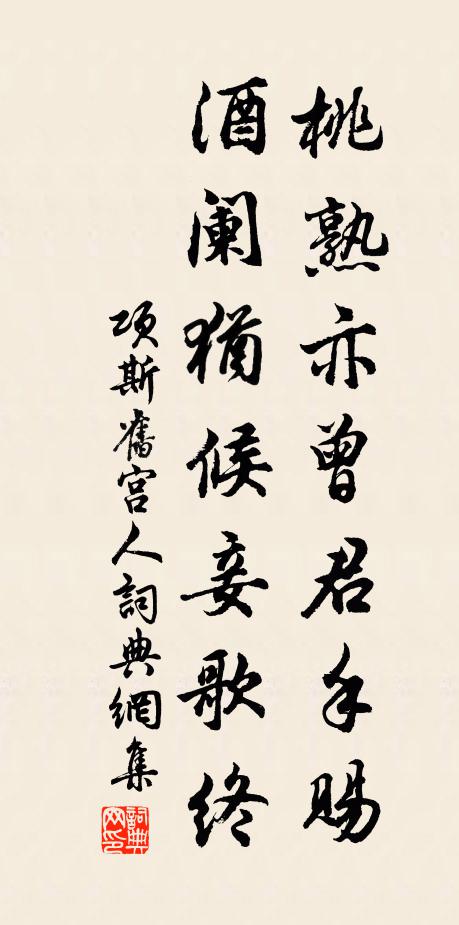 桃熟亦曾君手賜
酒闌猶候妾歌終
項斯舊宮人詞典網集
詞典
网印